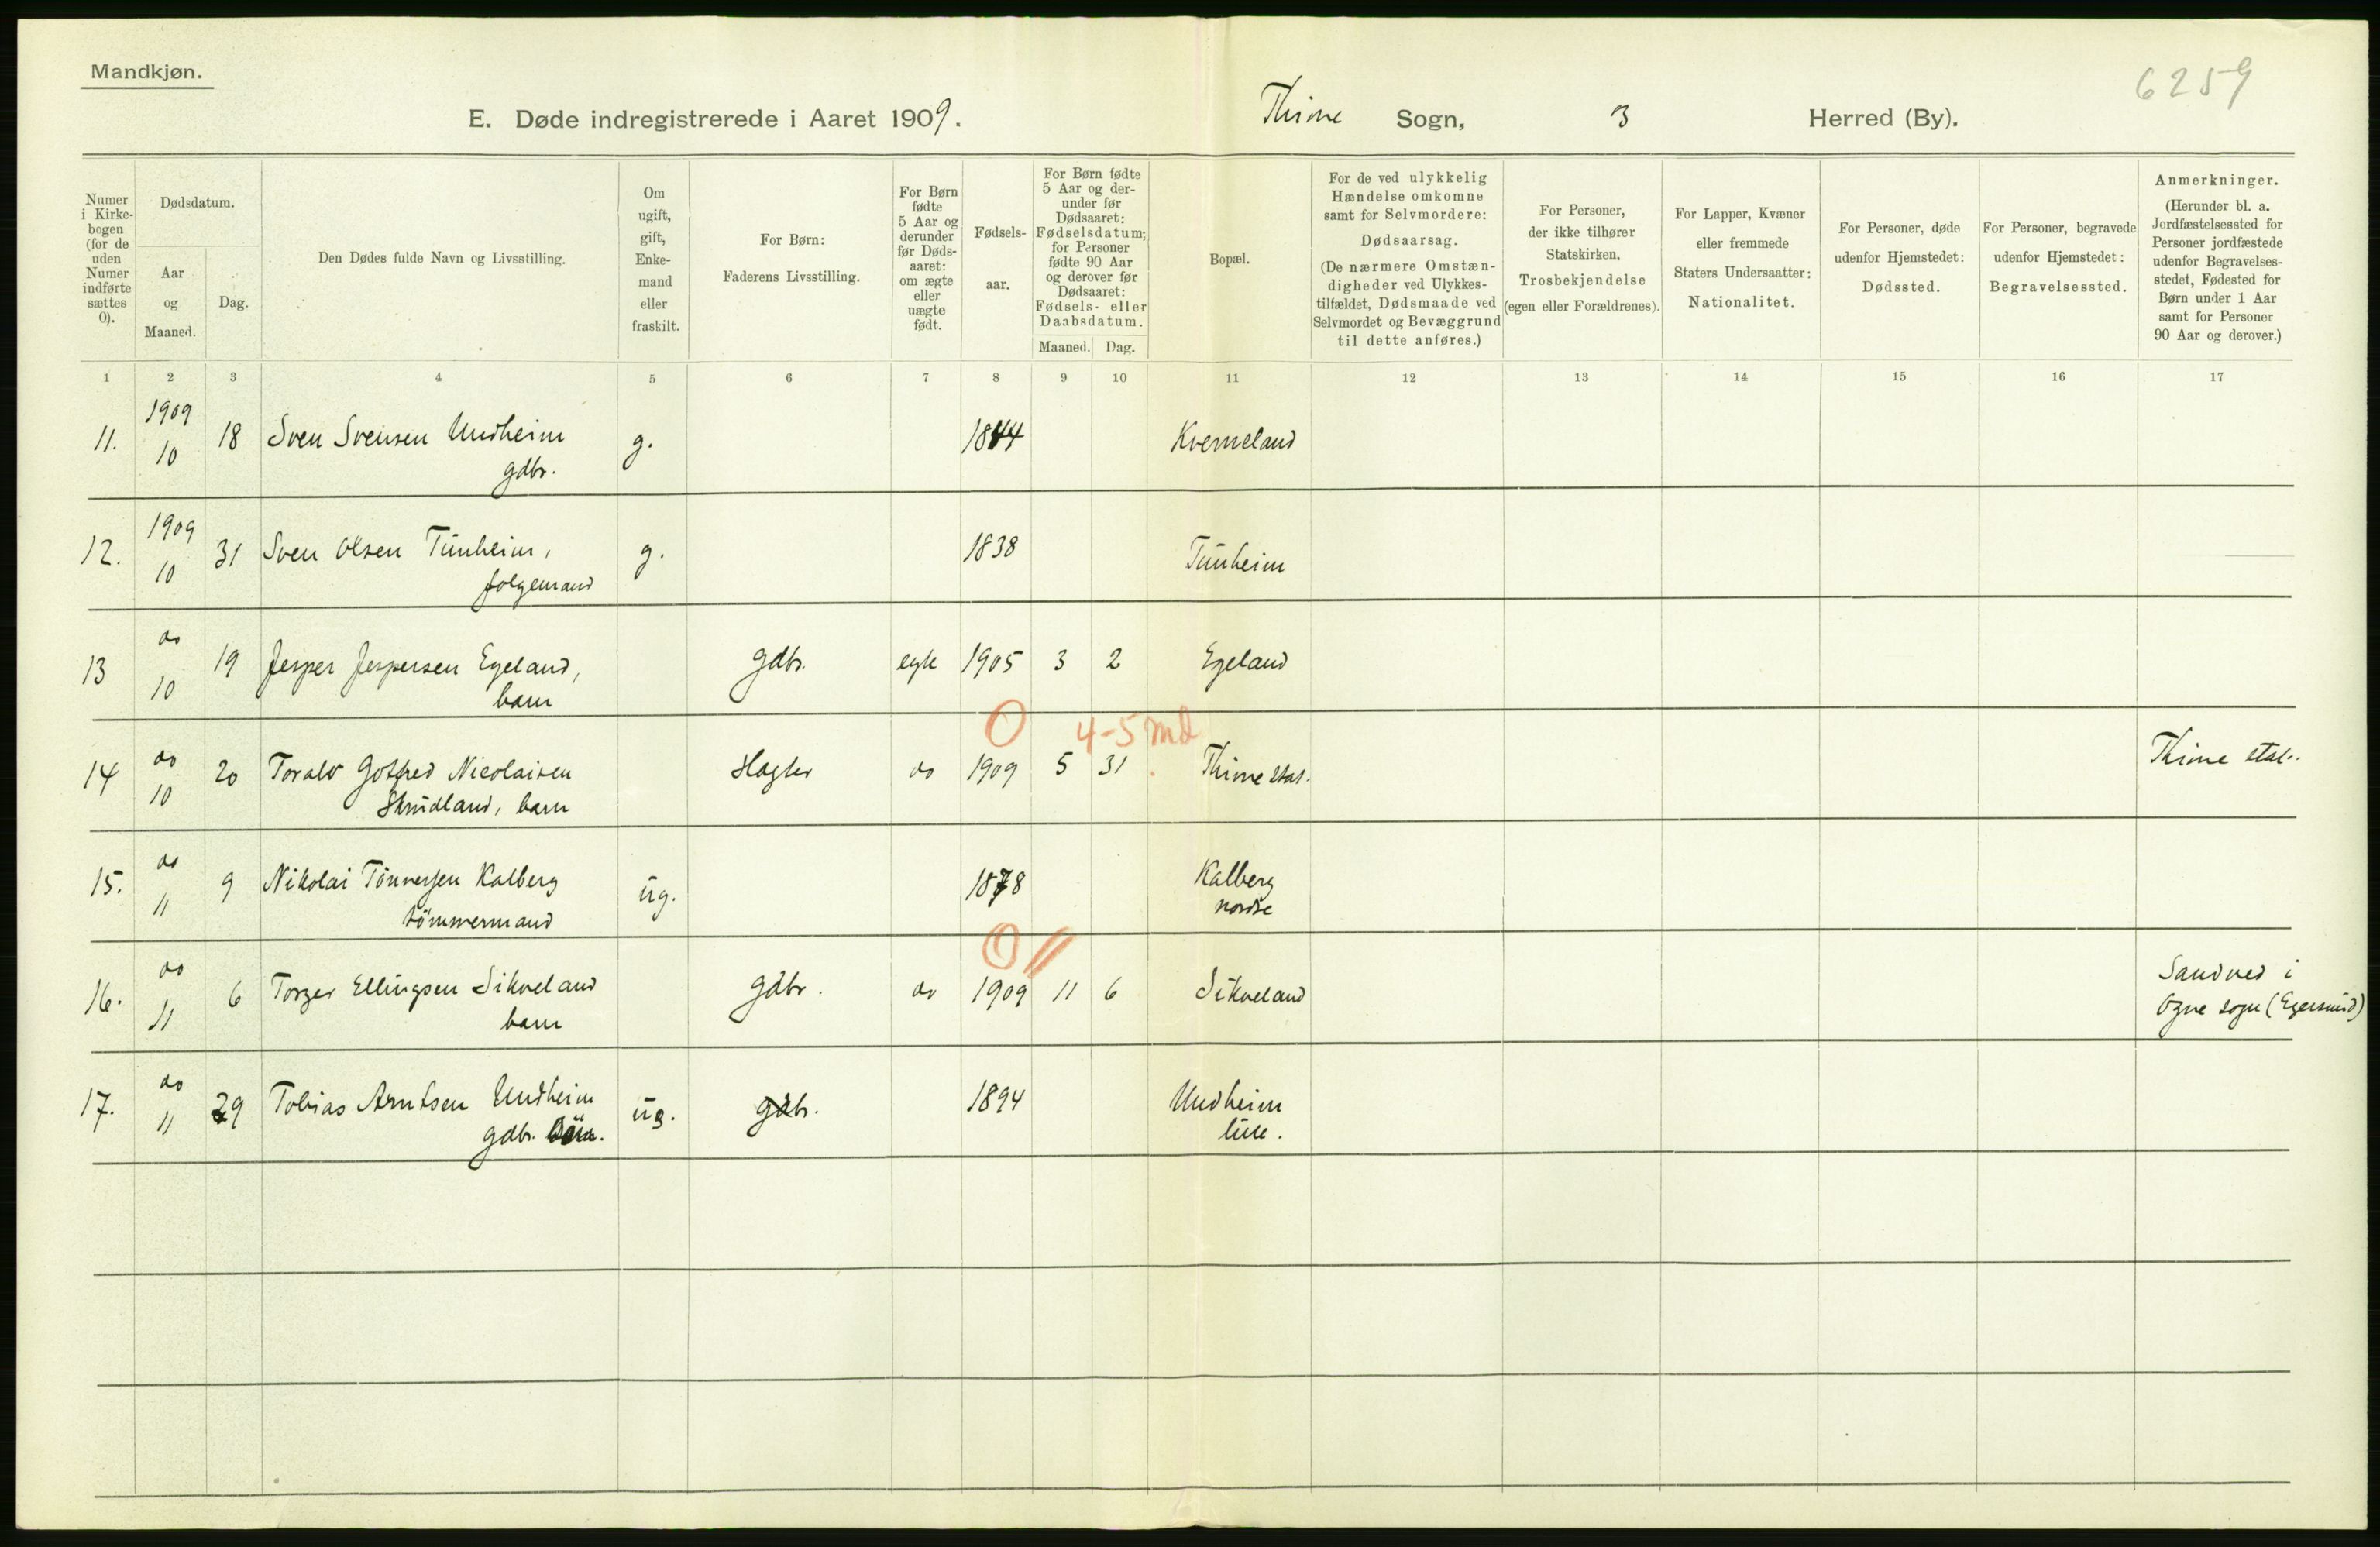 Mandkjøn.
6259
E. Døde indregistrerede i Aaret 1909. Thime Sogn, Herred (By).
Numer i Kirke-bogen (for de uden Numer indførte sættes 0).
Dødsdatum.
Aar og Maaned.
Dag.
Den Dødes fulde Navn og Livsstilling.
Om ugift, gift, Enke-mand eller fraskilt.
For Børn:
Faderens Livsstilling.
For Børn fødte 5 Aar og derunder før Døds-aaret: om ægte eller uægte født.
Fødsels-aar.
For Børn fødte 5 Aar og der-under før Dødsaaret: Fødselsdatum; for Personer fødte 90 Aar og derover før Dødsaaret: Fødsels- eller Daabsdatum.
Maaned. Dag.
Bopæl.
For de ved ulykkelig Hændelse omkomne samt for Selvmordere:
Dødsaarsag.
(De nærmere Omstæn-digheder ved Ulykkes-tilfældet, Dødsmaade ved Selvmordet og Bevæggrund til dette anføres.)
For Personer, der ikke tilhører Statskirken, Trosbekjendelse (egen eller Forældrenes).
For Lapper, Kvæner eller fremmede Staters Undersaatter: Nationalitet.
For Personer, døde udenfor Hjemstedet: Dødssted.
For Personer, begravede udenfor Hjemstedet: Begravelsessted.
Anmerkninger.
(Herunder bl. a. Jordfæstelsessted for Personer jordfæstede udenfor Begravelses-stedet, Fødested for Børn under 1 Aar samt for Personer 90 Aar og derover.)
1 2 3 4 5 6 7 8 9 10 11 12 13 14 15 16 17
1909
11. 10 18 Sven Svensen Undheim g. 1844 Kverneland
gdbr.
1909
12. 10 31 Sven Olsen Tunheim, g. 1838 Tunheim
folgemand
do
13 10 19 Jesper Jespersen Egeland, gdbr. egte 1905 3 2 Egeland
barn
0 4-5 md
do
14 10 20 Toralv Gotfred Nicolaisen do 1909 5 31 Thime stat. Thime stat.
barn
do
15. 11 9 Nikolai Tönnesen Kalberg ug. 1878 Kalberg
tömmermand nordre
0 //
do
16. 11 6 Torger Ellingsen Sikveland gdbr. do 1909 11 6 Sikveland Sandved i
barn Ogne sogn (Egersund)
do
17. 11 29 Tobias Arntsen Undheim ug. gdbr. 1894 Undheim
gdbr. lille.